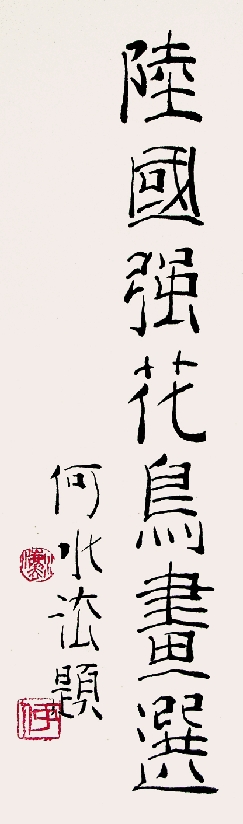 陸國强花鳥畫選
何水法題
何